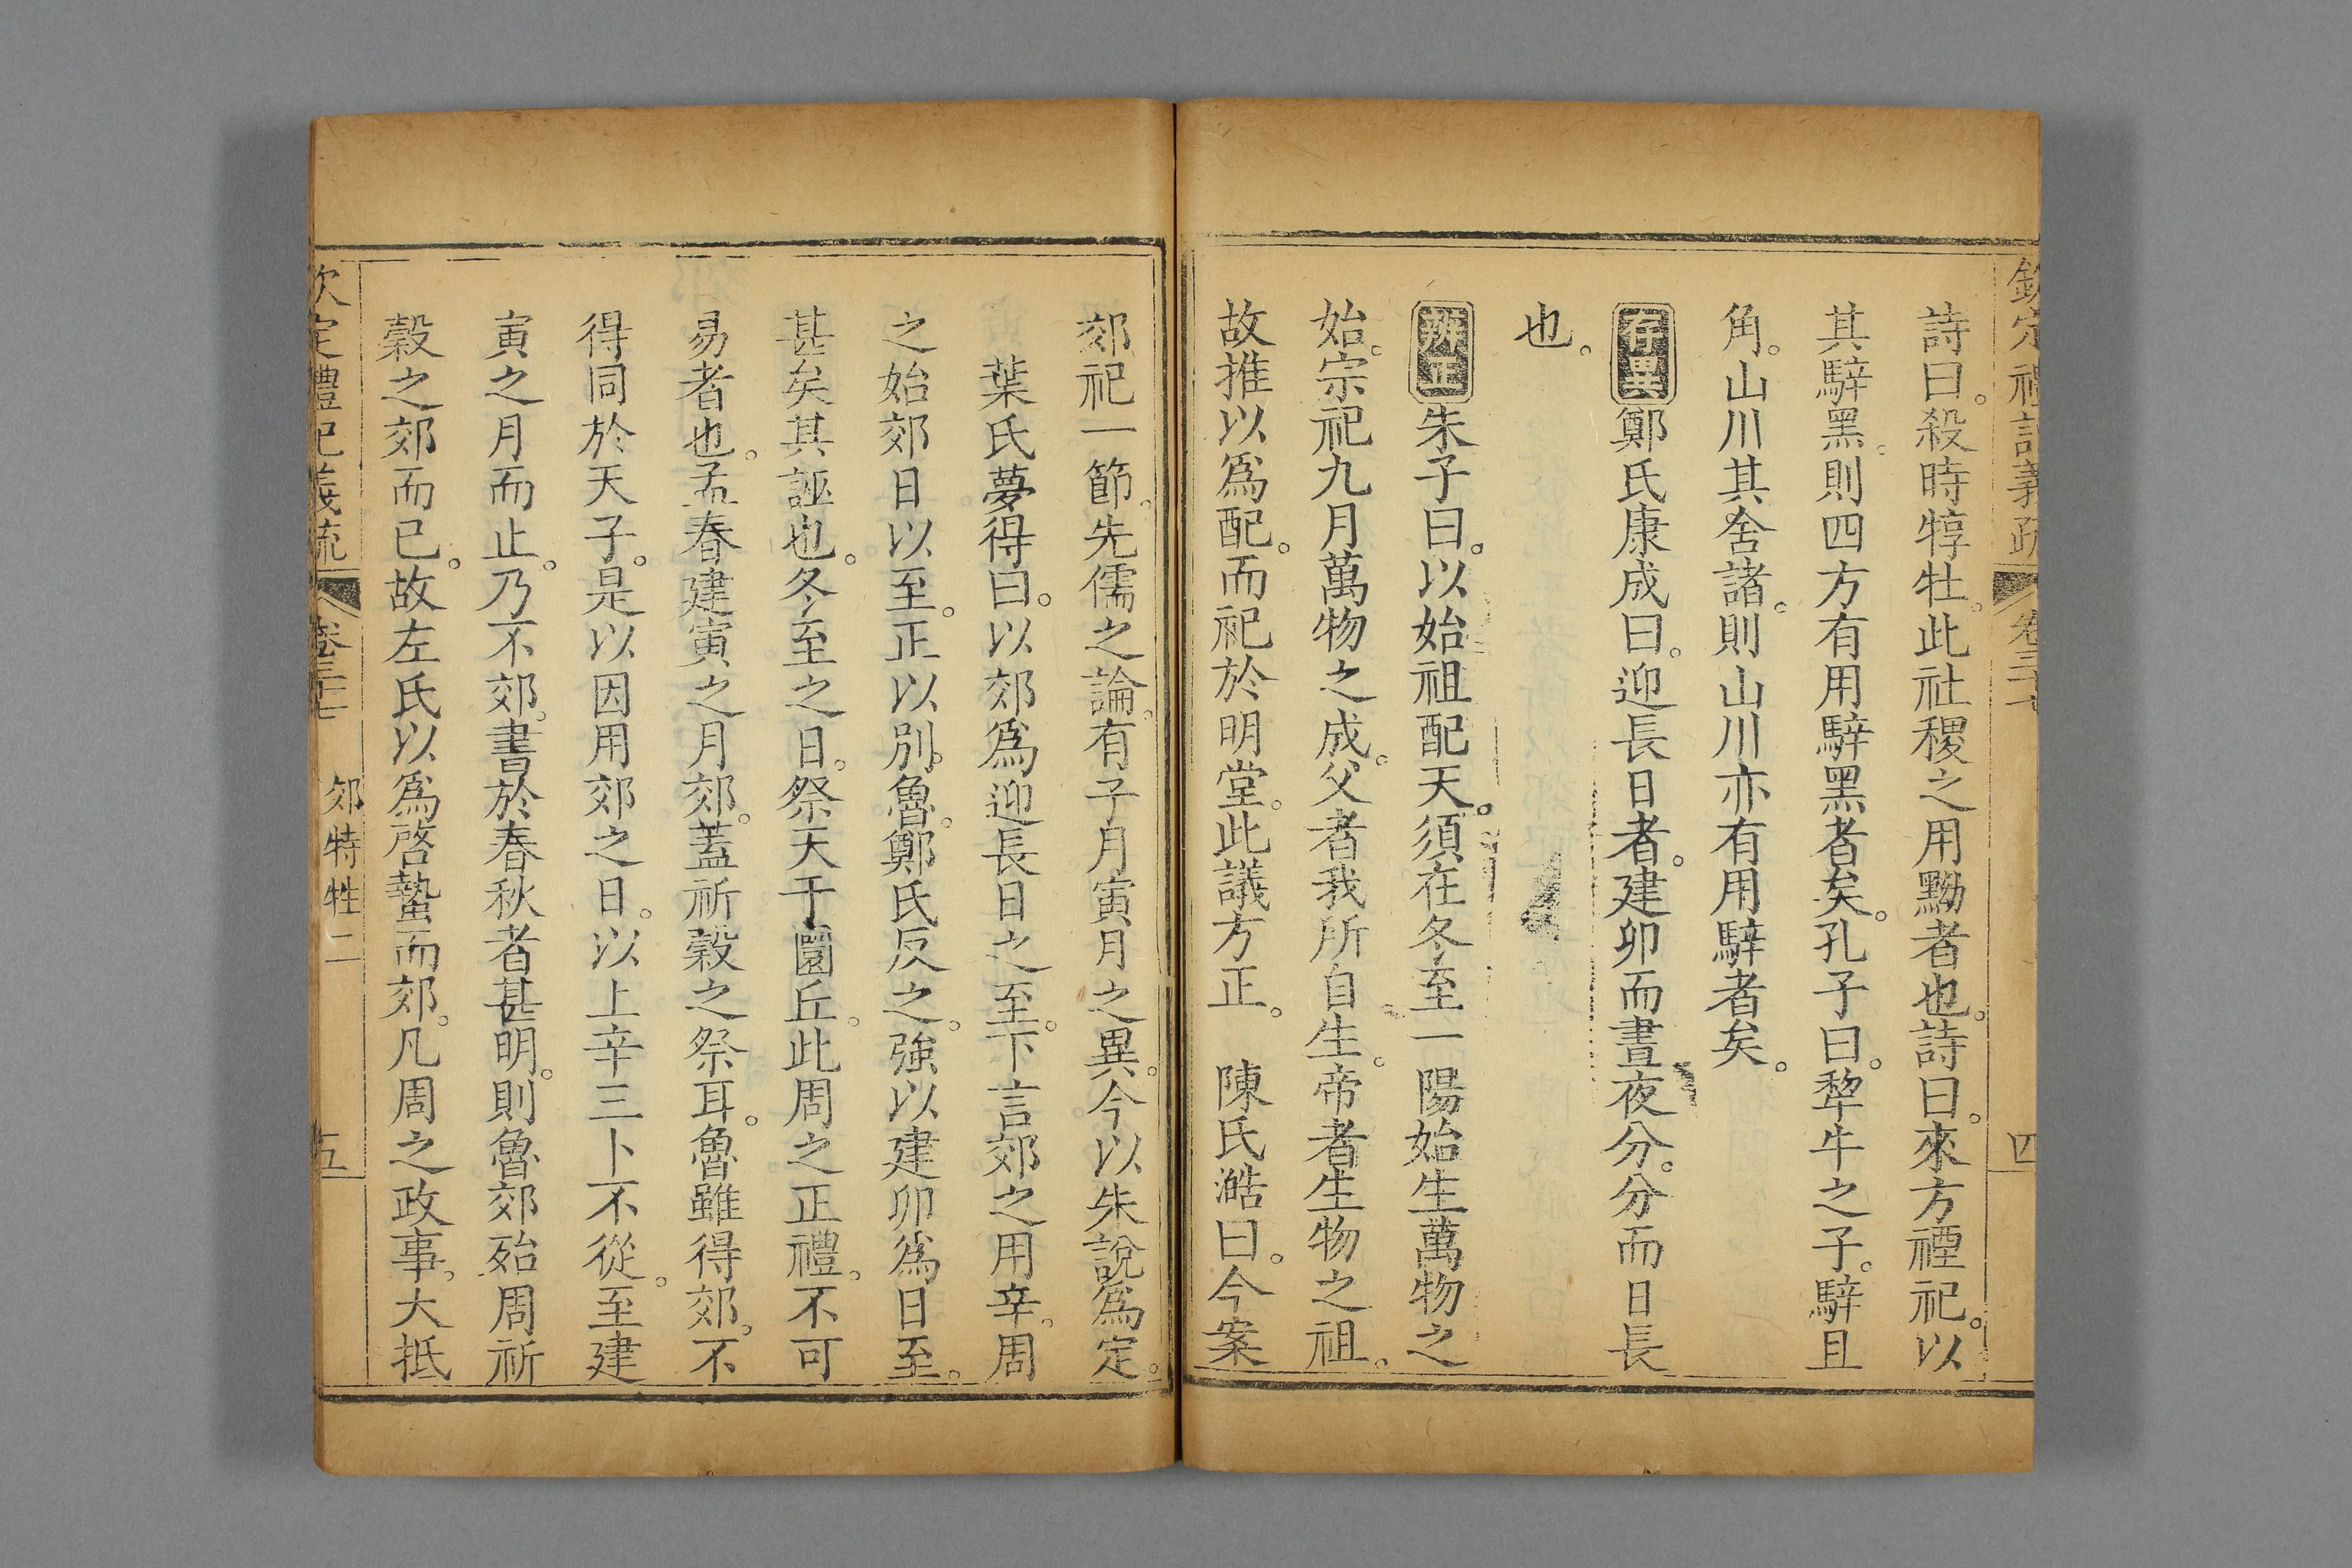 欽定禮記義疏 卷三十七 四
詩曰。殺時犉牡。此社稷之用黝者也。詩曰。來方禋祀。以
其騂黑。則四方有用騂黑者矣。孔子曰。犂牛之子。騂且
角。山川其舍諸。則山川亦有用騂者矣。
存異鄭氏康成曰。迎長日者。建卯而晝夜分。分而日長
也。
辨正朱子曰。以始祖配天。須在冬至一陽始生萬物之
始。宗祀九月萬物之成。父者我所自生。帝者生物之祖。
故推以爲配。而祀於明堂。此議方正。 陳氏澔曰。今案
郊祀一節。先儒之論。有子月寅月之異。今以朱說爲定。
葉氏夢得曰。以郊爲迎長日之至。下言郊之用辛。周
之始郊日以至。正以別魯。鄭氏反之。強以建卯爲日至。
甚矣其誣也。冬至之日。祭天于圜丘。此周之正禮。不可
易者也。孟春建寅之月郊。蓋祈穀之祭耳。魯雖得郊。不
得同於天子。是以因用郊之日。以上辛三卜不從。至建
寅之月而止。乃不郊。書於春秋者甚明。則魯郊殆周祈
穀之郊而已。故左氏以爲啓蟄而郊。凡周之政事。大抵
欽定禮記義疏 卷三十七 郊特牲二 五